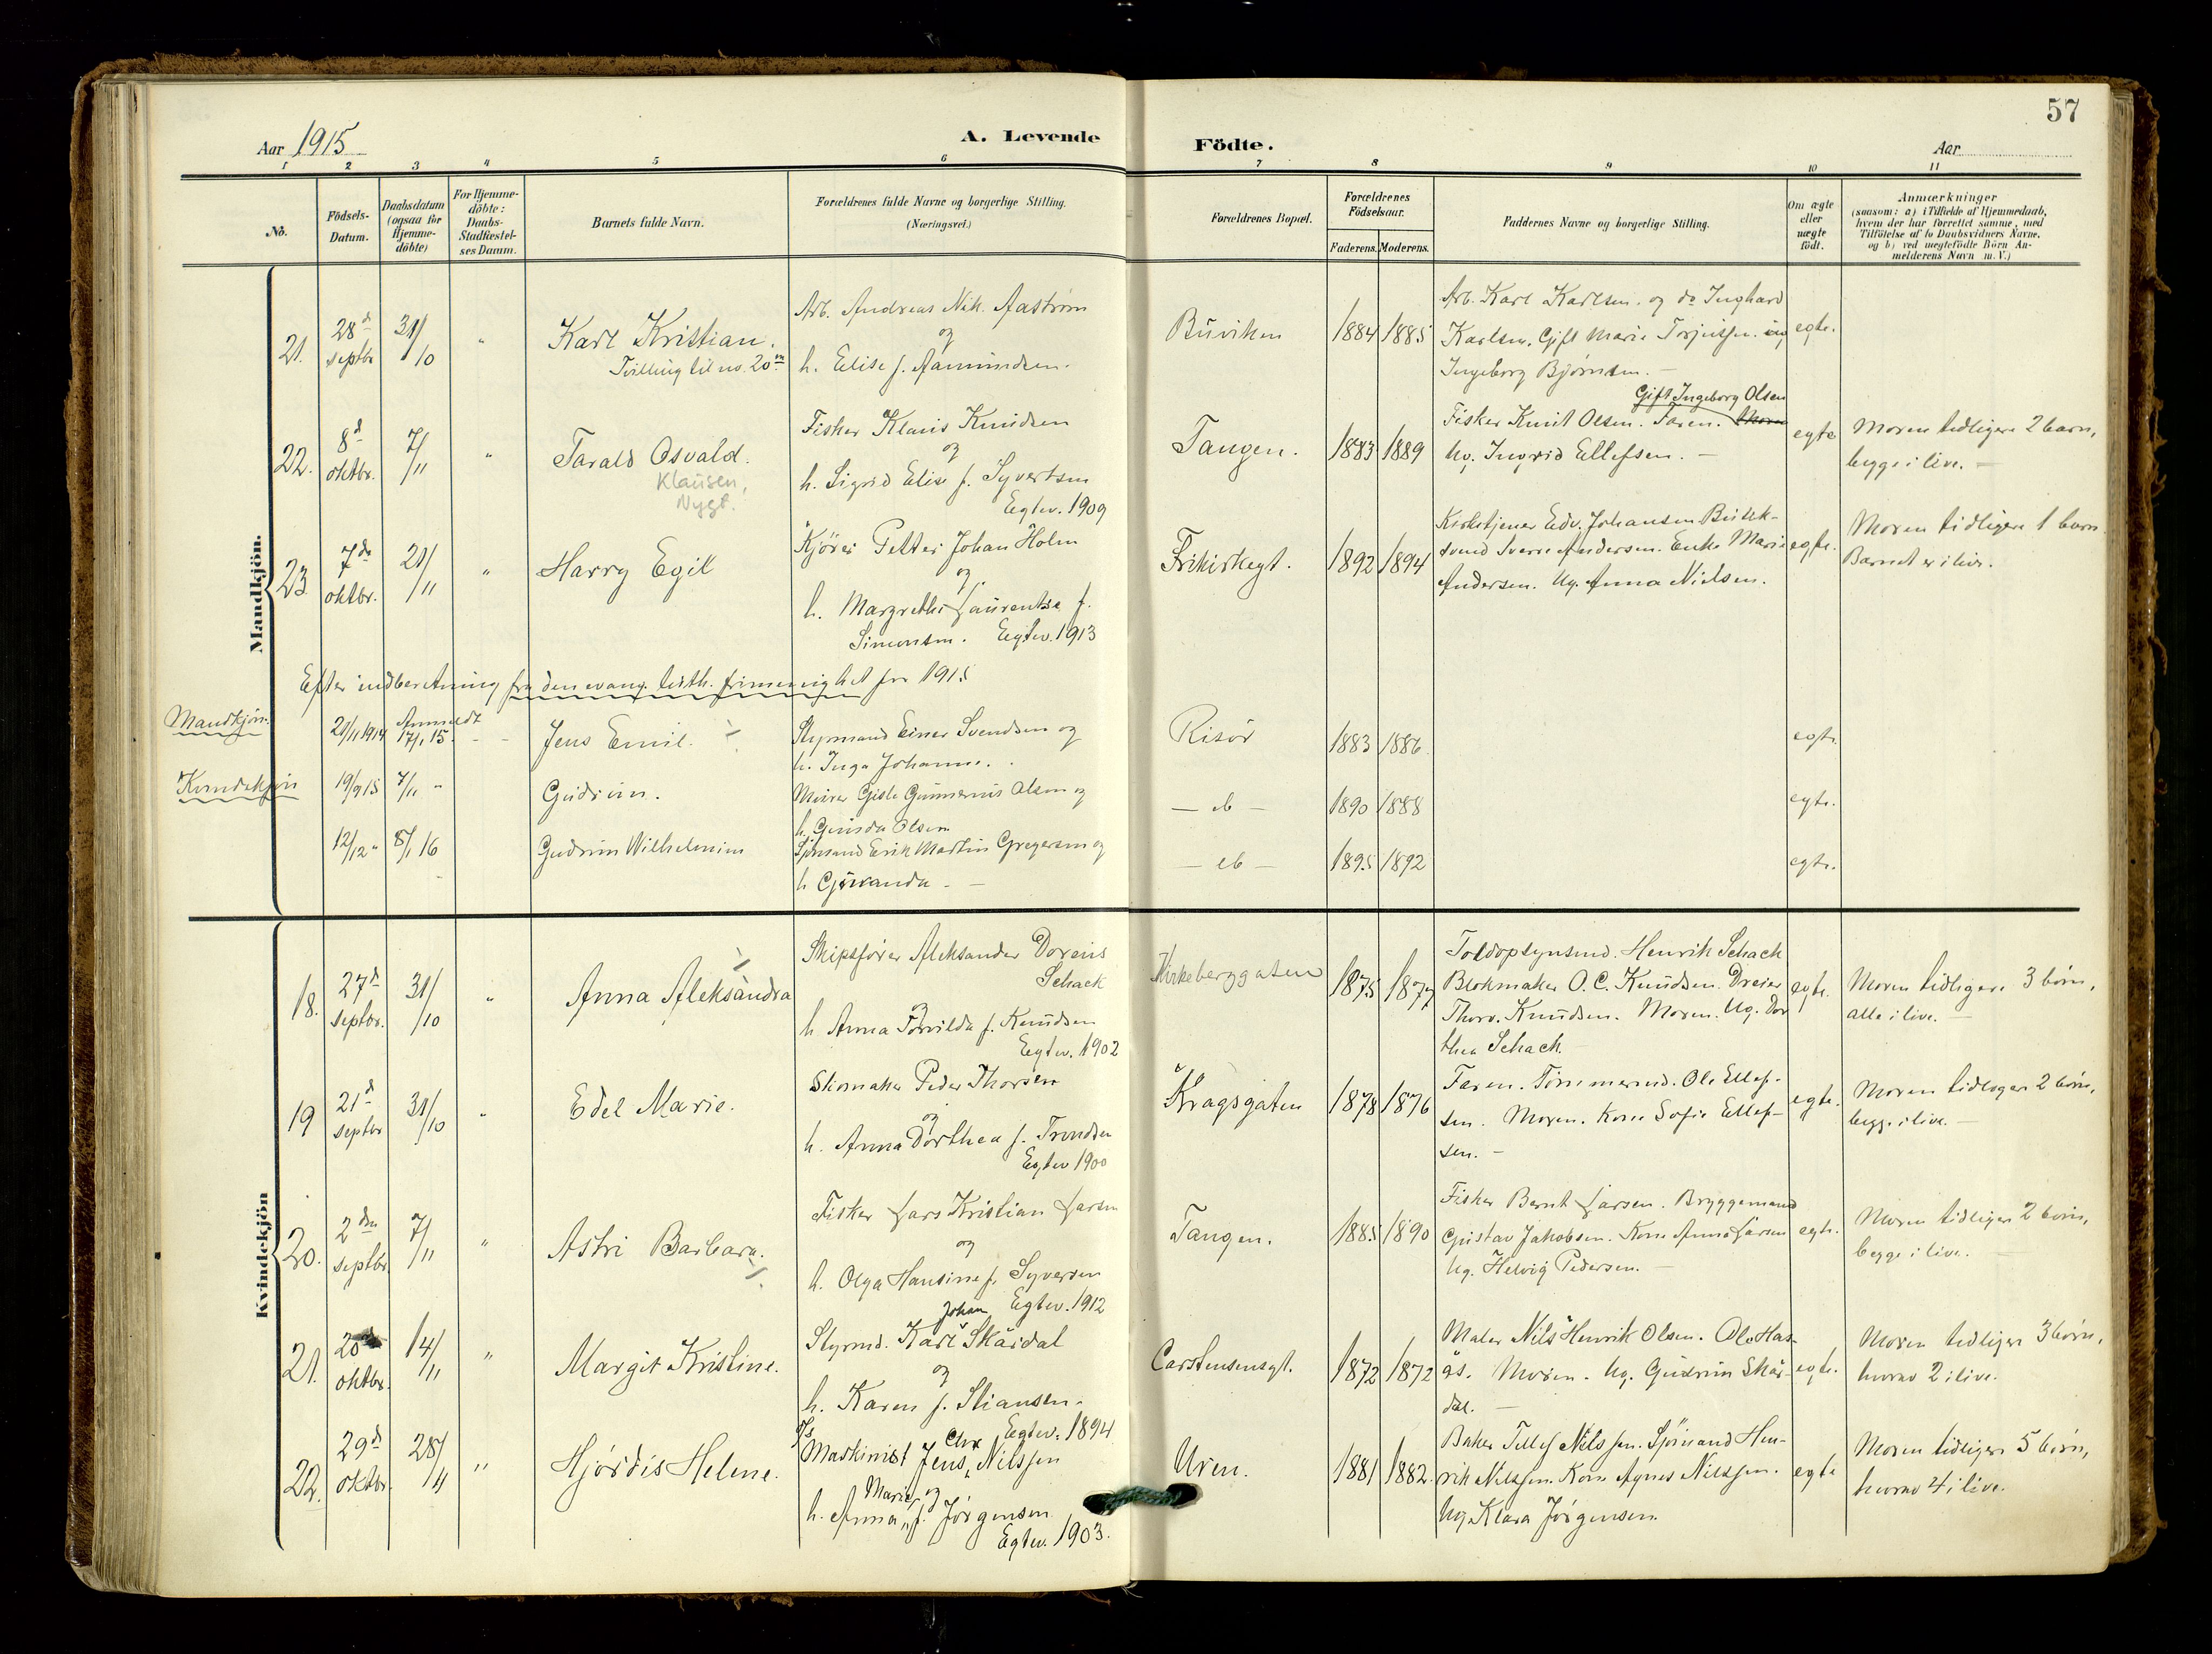 57
Aar 1915
A. Levende Födte.
Aar
1 2 3 4 5 6 7 8 9 10 11
No.
Födsels-Datum.
Daabsdatum (ogsaa for Hjemme-döbte)
For Hjemme-döbte: Daabs-Stadfæstel-ses Datum.
Barnets fulde Navn.
Forældrenes fulde Navne og borgerlige Stilling.
(Næringsvei.)
Forældrenes Bopæl.
Forældrenes Födselsaar.
Faderens. Moderens.
Faddernes Navne og borgerlige Stilling.
Om ægte eller uægte födt.
Anmærkninger
(saasom: a) i Tilfælde af Hjemmedaab,
hvem der har forrettet samme, med
Tilföielse af to Daabsvidners Navne.
og b) ved uægtefödte Börn An-
melderens Navn m. V.)
Mandkjön.
21. 28d septbr 31/10 " Karl Kristian.
Tvilling til no. 20
Arb. Andreas Nik. Aaström
og
h. Elise f. Aamundsen.
Buviken 1884 1885
Arb. Karl Karlsen. og do Inghard
Karlsen. Gift Marie Terjussen. ug
Ingeborg Bjørnsen. –
egte.
22. 8d oktbr. 7/11 " Tarald Osvald.
Klausen,
Nygt.
Fisker Klaus Knudsen
og
h. Sigrid Elise f. Syvertsen
Egtev. 1909
Tangen. 1883 1889
Gift Ingeborg Olsen
Fisker Knut Olsen. Faren. Moren
Ug. Ingrid Ellefsen. –
egte
Moren tidligere 2 barn,
begge i live. –
23. 7de oktbr. 21/11 " Harry Egil
Kjører Petter Johan Holm
og
h. Margrethe Laurentse f.
Simonsen. Egtev. 1913
Frikirkegt. 1892 1894
Kirketjener Edv. Johansen Butik-
svend Sverre Andersen. Enke Marie
Andersen. Ug. Anna Nielsen.
egte.
Moren tidligere 1 barn.
Barnet er i live.
Efter indberetning fra den evang. luth. frimenighet for 1915
Mandkjön. 21/11 1914 Anmeldt 17/1 15. Jens Emil.
Styrmand Einer Svendsen og
h. Inga Johanne.
Risør 1883 1886. egte.
Kvindekjön 19/9 15 7/11 " Gudrun.
Murer Gisle Gunnerius Olsen og
h. Gunda Olsen
– " – 1890 1888 egte.
12/12 " 8/1 16 Gudrun Wilhelmine
Sjömand Erik Martin Gregersen og
h
– " – 1895 1892 egte.
Kvindekjön
18. 27d septbr. 31/10 " Anna Aleksandra
Skipsfører Aleksander Doreius
Schack
og
h Anna Torvilda f. Knudsen
Egtev. 1902
Kirkeberggaten 1875 1877
Toldopsynsmd. Henrik Schack
Blokmaker O. C. Knudsen. Dreier
Thorv. Knudsen. Moren. Ug. Dor
thea Schack.
egte.
Moren tidligere 3 børn,
alle i live. –
19 21d septbr 31/10 " Edel Marie.
Skomaker Peder Thorsen
og
h. Anna Dorthea f. Trondsen
Egtev 1900
Kragsgaten 1878 1876
Faren. Tømmermd. Ole Ellef-
sen. Moren. Kone Sofie Ellef-
sen. –
egte.
Moren tidligere 2 børn,
begge i live. –
20. 2den septbr. 7/11 " Astri Barbara.
Fisker Lars Kristian Larsen
og
h. Olga Hansine f. Syversen
Egtev. 1912
Tangen. 1885 1890
Fisker Bernt Larsen. Bryggemand
Gustav Jakobsen. Kone Anna Larsen
Ug. Helvig Pedersen. –
egte.
Moren tidligere 2 børn,
begge i live.
21. 20d oktbr. 14/11 " Margit Kristine.
Johan
Styrmd. Karl Skårdal
og
h. Karen f. Stiansen.
Egtev. 1894
Carstensensgt. 1872 1872
Maler Nils Henrik Olsen. Ole Has-
ås. Moren. Ug. Gudrun Skår-
dal. –
egte.
Moren tidligere 3 børn,
hvorav 2 i live.
22. 29d oktbr. 28/11 " Hjørdis Helene.
Chr
Maskinist Jens Nilssen
Marie og
h. Anna f. Jørgensen
Egtev. 1903.
Uren. 1881 1882.
Baker Tellef Nilssen. Sjömand Hen-
rik Nilssen. Kone Agnes Nilssen.
Ug. Klara Jørgensen.
egte
Moren tidligere 5 børn,
hvorav 4 i live.